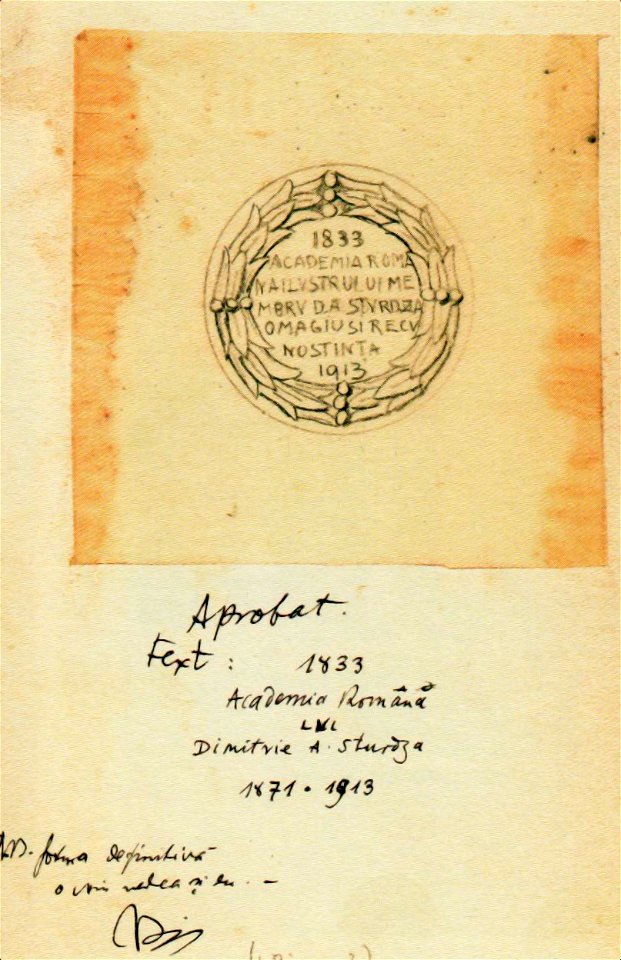 1833
ACADEMIA ROMA
NA ILUSTRULUI ME
MBRU D.A STVRDZA
OMAGIU SI RECU
NOSTINȚA
1913
Aprobat.
Text : 1833
Academia Română
LUI
Dimitrie A. Sturdza
1871 • 1913
NB. forma definitivă
o voiu vedea și eu. –